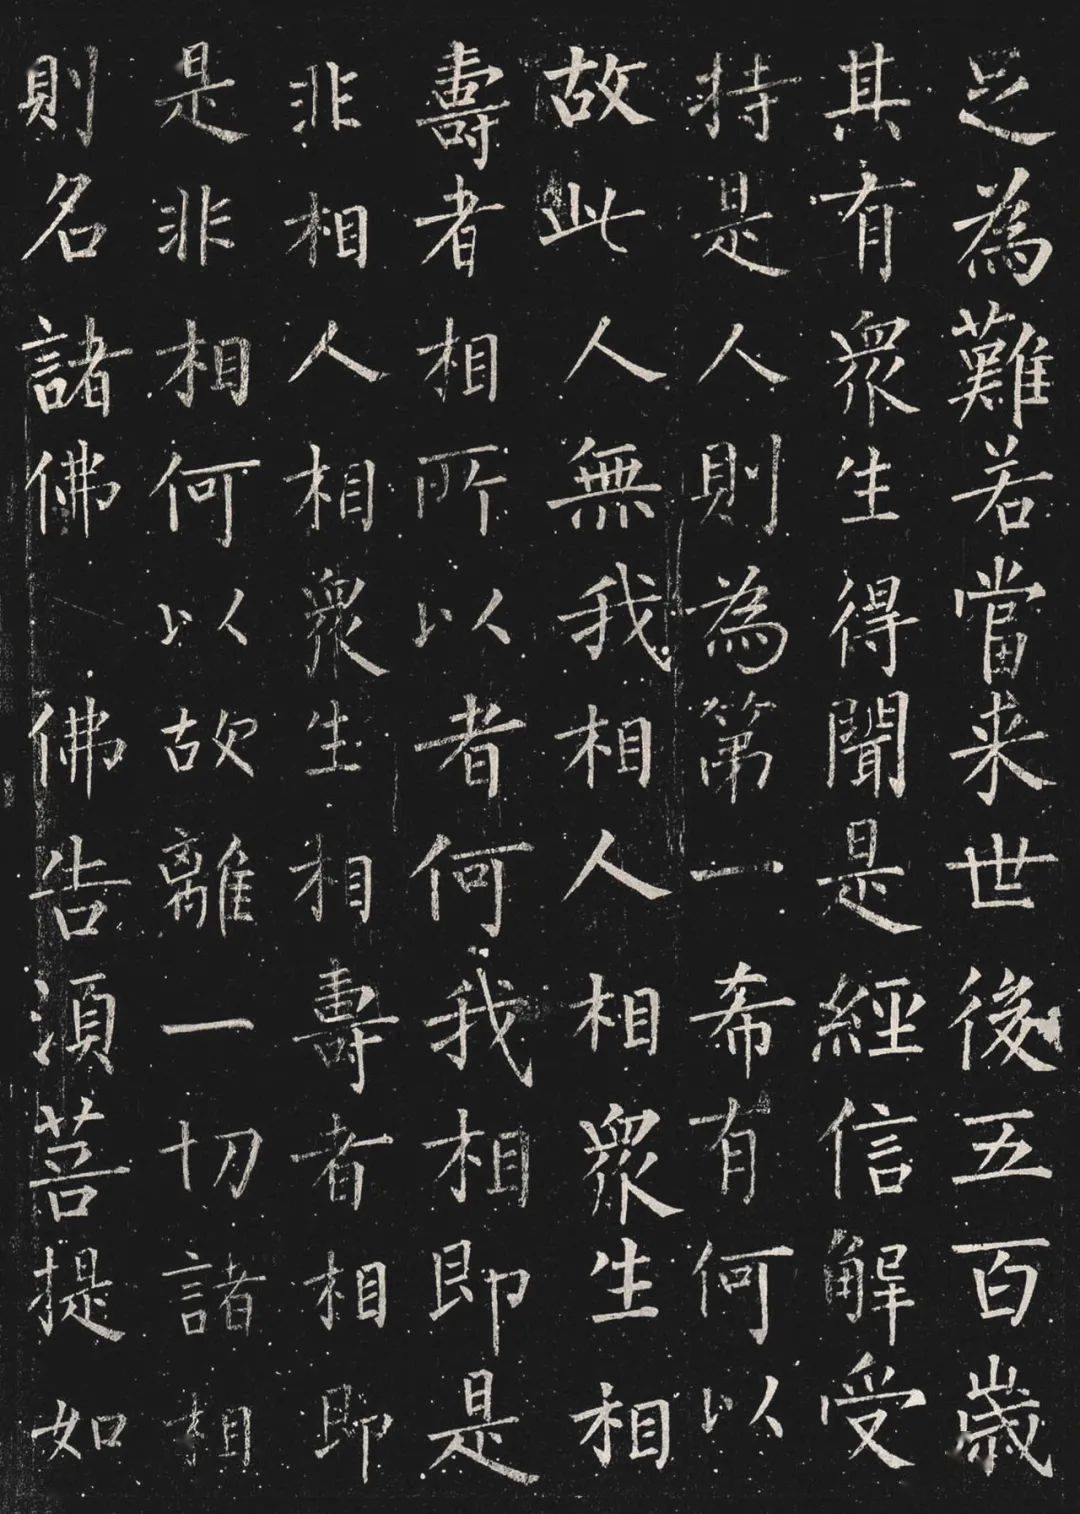 足為難若當来世後五百歲
其有眾生得聞是經信解受
持是人則為第一希有何以
故此人無我相人相眾生相
壽者相所以者何我相即是
非相人相眾生相壽者相即
是非相何以故離一切諸相
則名諸佛 佛告須菩提如